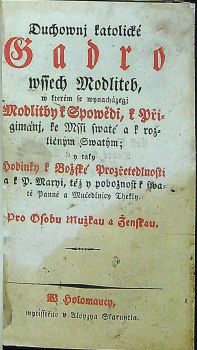 Duchownj katolické
Gadro
wssech Modliteb,
w kterém se wynacházegj
Modlitby k Spowědi, k Při-
gimánj, ke Mssi swaté a k roz-
ličným Swatým;
y taky
Hodinky k Božské Prozřetedlnosti
a k P. Maryi, též y pobožnost k swa-
té Panně a Mučedlnicy Thekly.
Pro Osobu Mužkau a Ženskau.
W Holomaucy,
wytisstěno u Aloyzya Skarnycla.